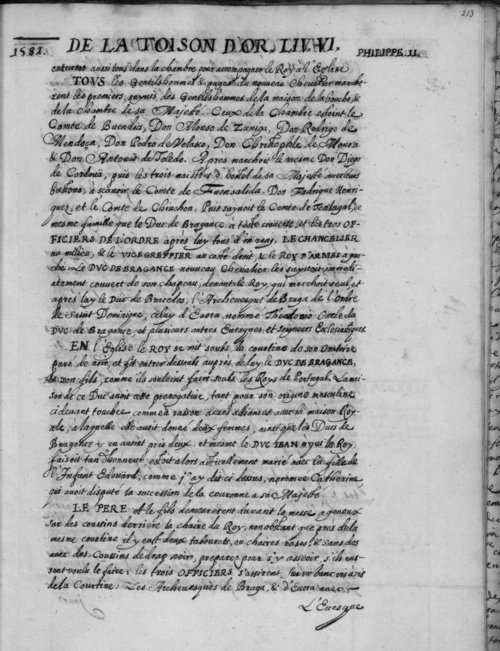 213
1581. DE LA TOISON D'OR. LIV. VI. PHILIPPE. II.
entrerent aussi tous dans la chambre pour accompagner le Roy a l'Eglise
TOUS les Gentilshommes & pages du nouveau Chevalier marche-
rent les premiers, suyvis des Gentilshommes de la maison de la bouche &
de la Chambre de sa Majesté. Ceux de la Chambre estoient le
Comte de Buendia, Don Alonso de Zuniga, Don Rodrigo de
Mendoça, Don Pedro de Velasco, Don Christophle de Moura
& Don Antonio de Toledo. Apres marchoit le mesme Don Diego
de Cordoua, puis les trois maistres d'hostel de sa Majesté avec leurs
bastons, a scavoir le Comte de Fuensalida, Don Fadrique Henri-
quez, et le Comte de Chinchon. Puis suyvoit le Comte de Tentugal, de
mesme famille que le Duc de Bragance, a teste couverte, et les trois OF-
FICIERS DE L'ORDRE apres luy tous d'un rang, LE CHANCELIER
au milieu, & le VICEGREFFIER au costé droit, & le ROY D'ARMES a gau-
che. LE DUC DE BRAGANCE nouveau Chevalier les suyvoit immedi-
atement couvert de son chapeau, devant le Roy, qui marchoit seul, et
apres luy le Duc de Barcelos, l'Archevesque de Braga de l'Ordre
de Saint Dominique, celuy d'Evora nommé Theotonio Oncle du
DUC de Bragance, et plusieurs autres Evesques, et Seigneurs Ecclesiastiques
EN l'Eglise LE ROY se mit soubs la courtine de son Oratoire
paré de noir, et fit entrer dessoubs aupres de luy le DUC DE BRAGANCE,
et son fils, comme ils souloient faire soubs les Roys de Portugal. La mai-
son de ce Duc avoit cette prerogative, tant pour son origine masculine
cidevant touchée comme a raison de ses alliances avec la maison Roya-
le, a laquelle elle avoit donné deux femmes, ainsi que les Ducs de
Bragance y en avoient pris deux: et mesme le DUC JEAN a qui le Roy
faisoit tan d'honneur, estoit alors actuellement marié avec la fille de
l'Infant Edouard, comme j'ay dit ci dessus, nommée Catherine,
qui avoit disputé la succession de la couronne a sa Majesté
LE PERE et le fils demeurerent durant la messe a genoux
sur des coussins derriere la chaire du Roy, nonobstant que pres de la
mesme courtine il y eust deux tabourets, ou chaires rases, & sans dos
avec des Coussins de drap noir, preparez pour s'y asseoir, s'ils eus-
sent voulu le faire: les trois OFFICIERS s'assirent sur un banc vis à vis
de la Courtine: Les Archevesques de Braga, & d'Evora avec
L'Evesque